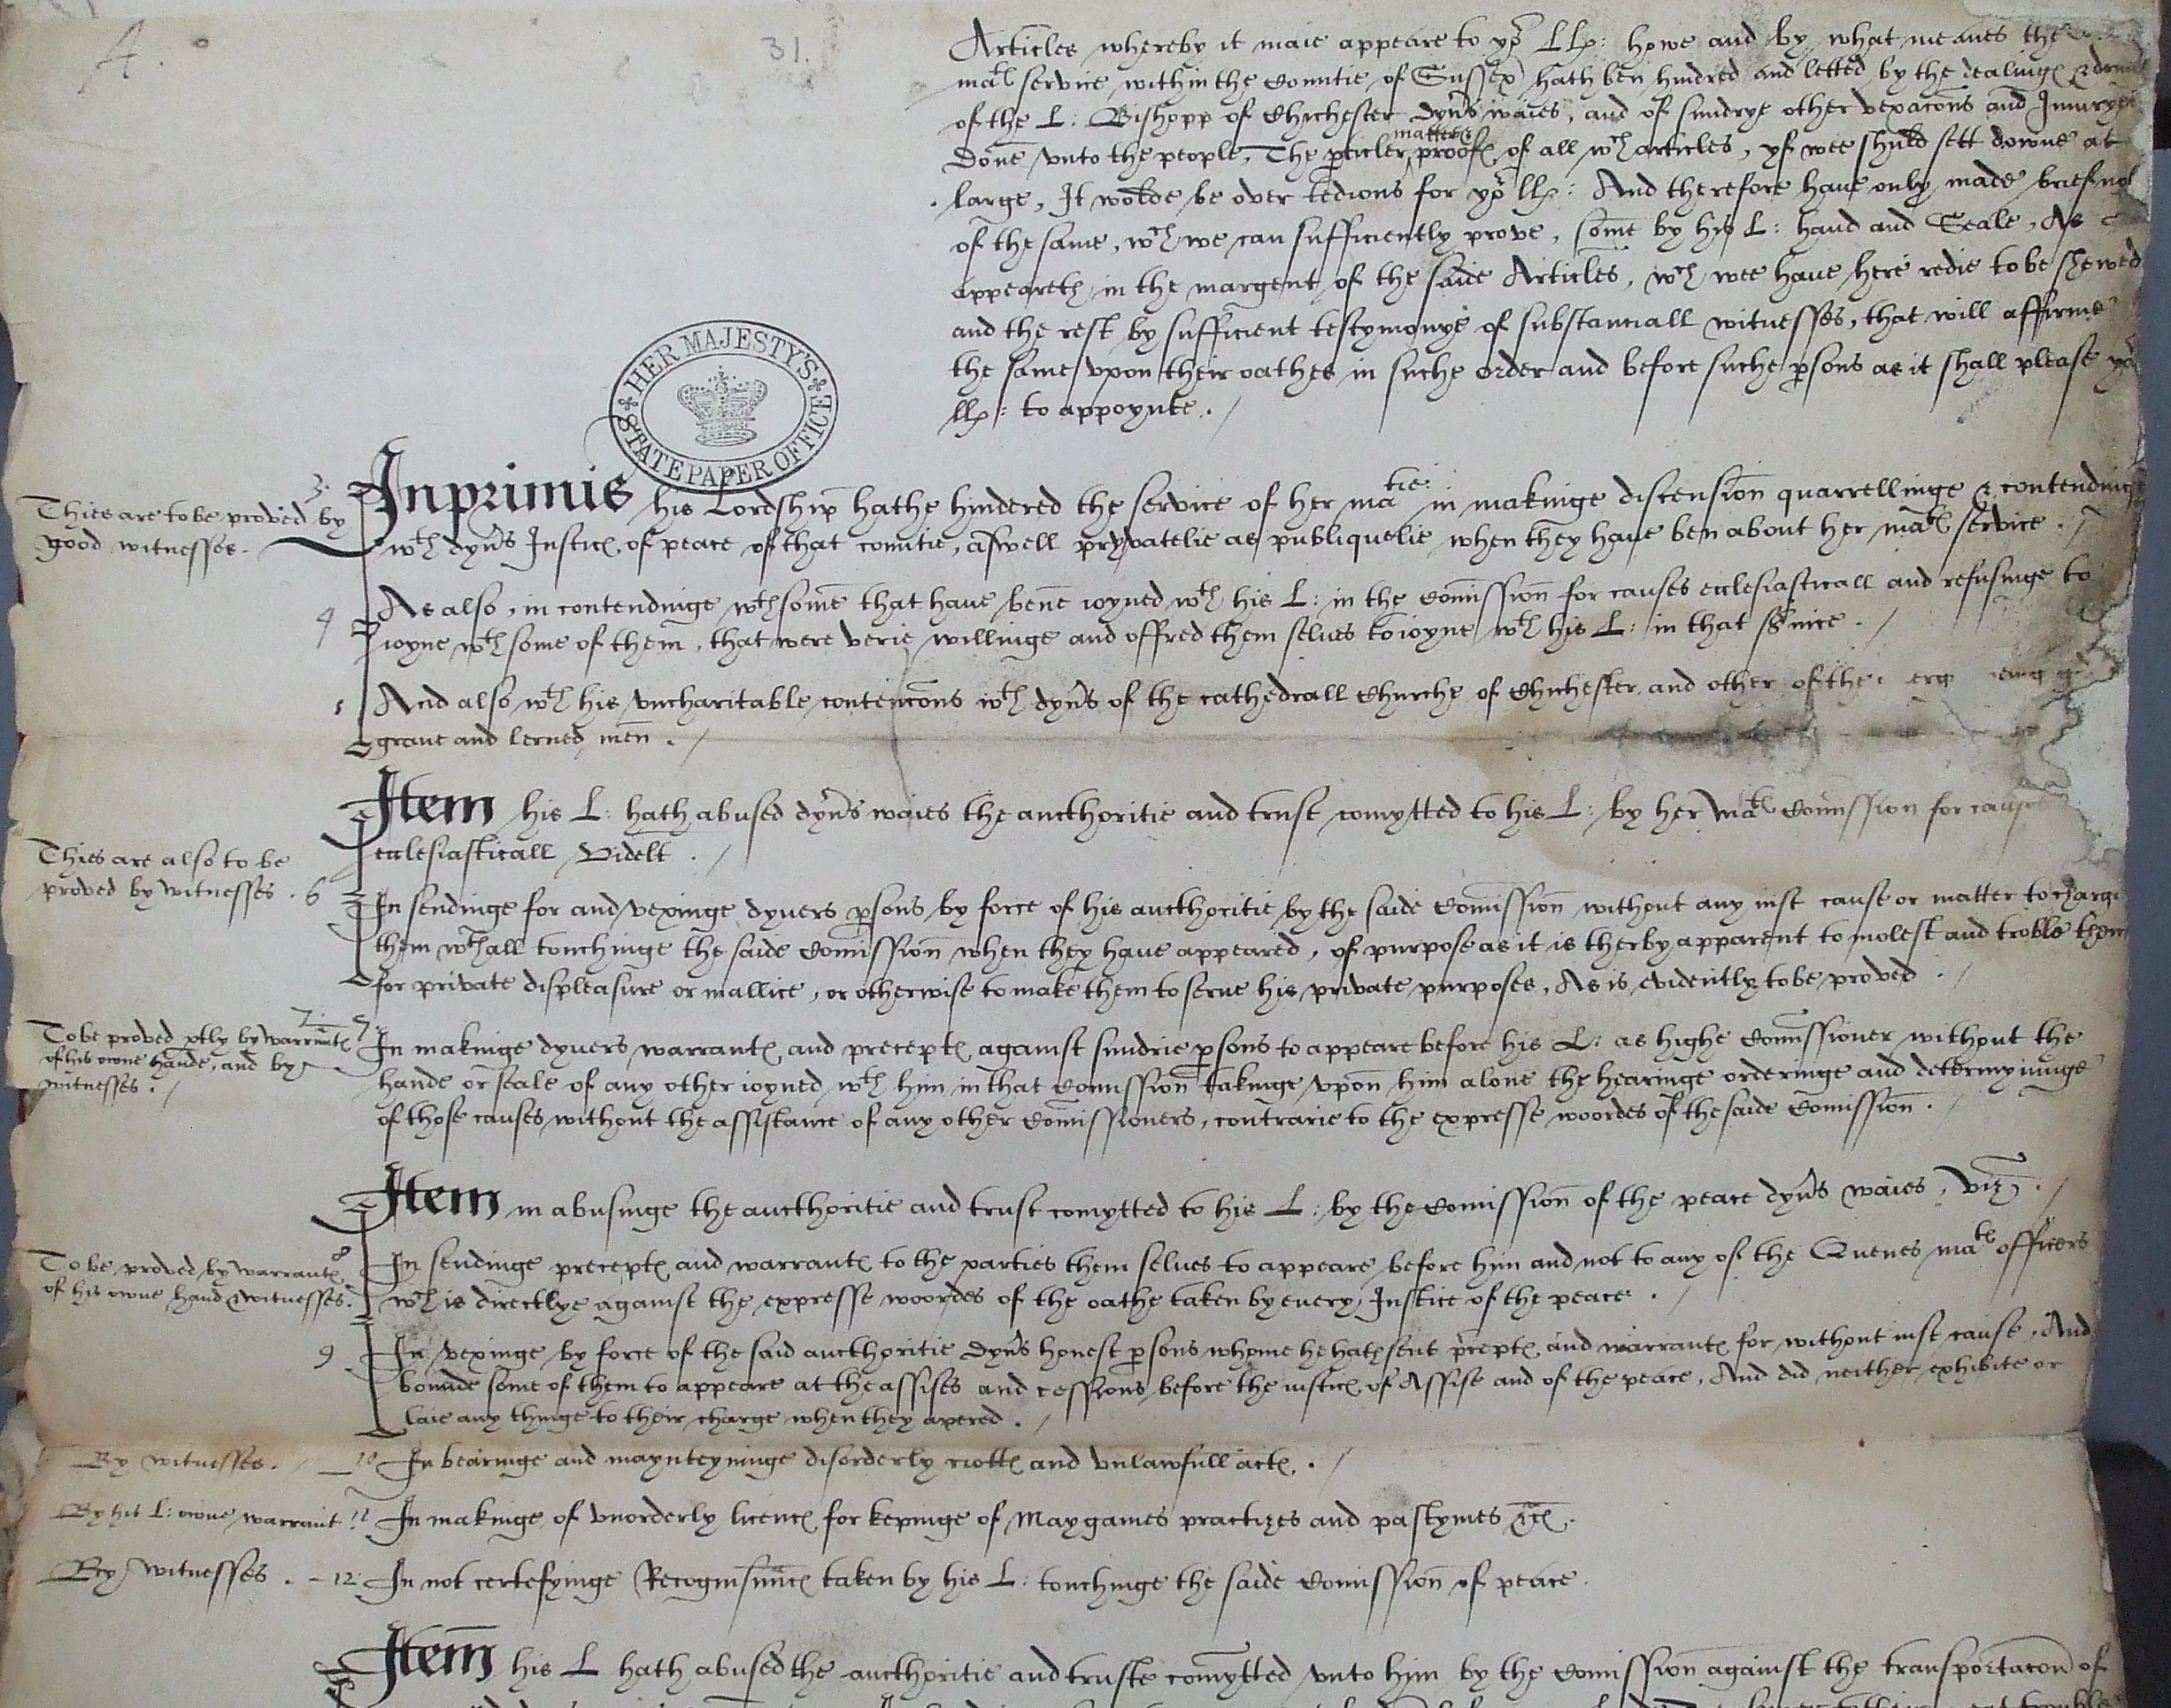 A.
31.
Articles whereby it maie appeare to yor LLp: howe and by what meanes the
matᵉˢ service within the Countie of Sussex hath ben hindred and letted by the dealingᵉˢ &
of the L: Bishopp of Chichester dyvᵉʳs waies, and of sundrye other vexacōns and Iniuryes
Done vnto the people, The pticler matters proofᵉˢ of all wᶜʰ articles, yf wee shuld sett downe at
large, It wolde be over tedious for yoʳ llp: And therefore haue only made brief
of the same, wᶜʰ we can sufficiently prove, some by his L: hand and Seale, As
appeareth in the margent of the saide Articles, wᶜʰ wee haue here redie to be shewed
and the rest by sufficient testymonye of substanciall witnesses, that will affirme
the same vpon their oathes in suche order and before suche psons as it shall please yoʳ
llp: to appoynte. /
HER MAJESTY'S STATE PAPER OFFICE
Thies are to be proved by
good witnesses.
3. Inprimis his Lordship hathe hindered the service of her maᵗⁱᵉ in makinge discension quarrellinge & contendinge
wᵗʰ dyvᵉʳs Iusticᵉˢ of peace of that countie, aswell pryvatelie as publiquelie when they haue ben about her matᵉˢ service. /
4 As also, in contendinge wᵗʰ some that haue bene ioyned wᵗʰ his L: in the Comission for causes ecclesiasticall and refusinge to
ioyne wᵗʰ some of them, that were verie willinge and offred them selues to ioyne wᵗʰ his L: in that service. /
5 And also wᵗʰ his vncharitable contencōns wᵗʰ dyvᵉʳs of the cathedrall Churche of Chichester, and other of the
graue and lerned men. /
Item his L: hath abused dyvᵉʳs waies the aucthoritie and trust comytted to his L: by her Maᵗˢ Comission for causes
ecclesiasticall Videlt. /
Thies are also to be
proved by witnesses.
6 In sendinge for and vexinge dyuers psons by force of his aucthoritie by the saide Comission without any iust cause or matter to charge
them wᵗʰall touchinge the saide Comission when they haue appeared, of purpose as it is therby apparent to molest and troble them
for private displeasure or mallice, or otherwise to make them to serue his private purposes, As is evidently to be proved. /
To be proved ptly by warrantᵉˢ
of his owne hande, and by
witnesses. /
7. In makinge dyuers warrantᵉˢ and preceptᵉˢ against sundrie psons to appeare before his L: as highe Comissioner without the
hande or seale of any other ioyned wᵗʰ him in that Comission takinge vpon him alone the hearinge orderinge and determyninge
of those causes without the assistance of any other Comissioners, contrarie to the expresse woordes of the saide Comission. /
Item in abusinge the aucthoritie and trust comytted to his L: by the Comission of the peace dyvᵉʳs waies, viz. /
To be proved by warrantᵉˢ
of his owne hand & witnesses.
8 In sendinge preceptᵉˢ and warrantᵉˢ to the parties them selues to appeare before him and not to any of the Quenes maᵗˢ officers
wᶜʰ is directlye against the expresse woordes of the oathe taken by euery Iustice of the peace. /
9 In vexinge by force of the said aucthoritie dyvᵉʳs honest psons whome he hath sent pᵉceptᵉˢ and warrantᵉˢ for without iust cause, And
bounde some of them to appeare at the assises and cessions before the iusticᵉˢ of Assise and of the peace, And did neither exhibite or
laie any thinge to their charge when they apered. /
By witnesses.
10 In bearinge and maynteyninge disorderly riottᵉˢ and vnlawfull actᵉˢ. /
By his L: owne warrant
11 In makinge of vnorderly licencᵉˢ for kepinge of Maygames practizes and pastymes &c.
By witnesses.
12 In not certefyinge Recognisauncᵉˢ taken by his L: touchinge the saide Comission of peace.
Item his L hath abused the aucthoritie and truste comytted vnto him by the Comission against the transportacon of